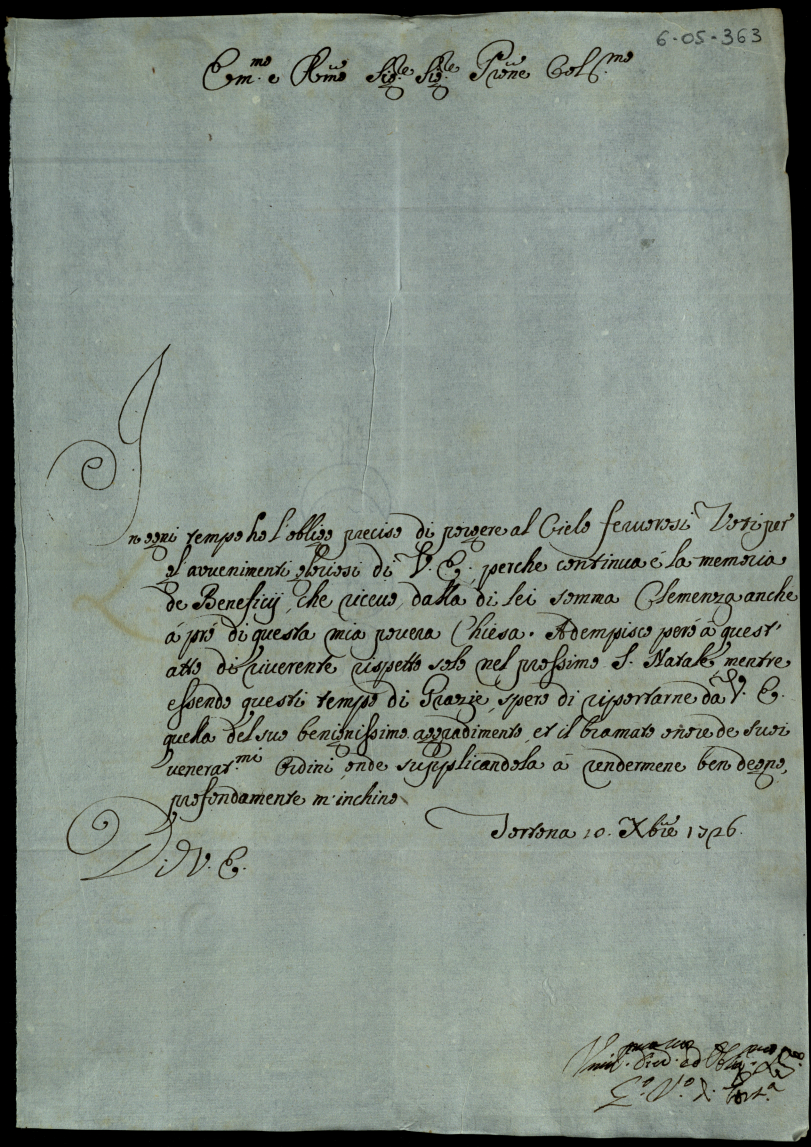 6-05-363
Em.mo e Rmo Sig.re Sig.re Prōne Col.mo
In ogni tempo hò l'obligo preciso di porgere al Cielo feruorosi Voti per
gl'avvenimenti gloriosi di V. E., perche continua è la memoria
de Beneficij, che riceuo dalla di lei somma Clemenza anche
à prò di questa mia pouera Chiesa. Adempisco però à quest'
atto di riuerente rispetto solo nel prossimo S. Natale, mentre
essendo questi tempo di Grazie, spero di riportarne da V. E.
quella del suo benignissimo aggradimento, et il bramato onore de suoi
venerat.mi Ordini, onde supplicandola à rendermene ben degno,
profondamente m'inchino
Tortona 10. Xbre 1726.
Di V. E.
Vmil.mo diu.mo ed Obl.mo
V.o di Tort.a